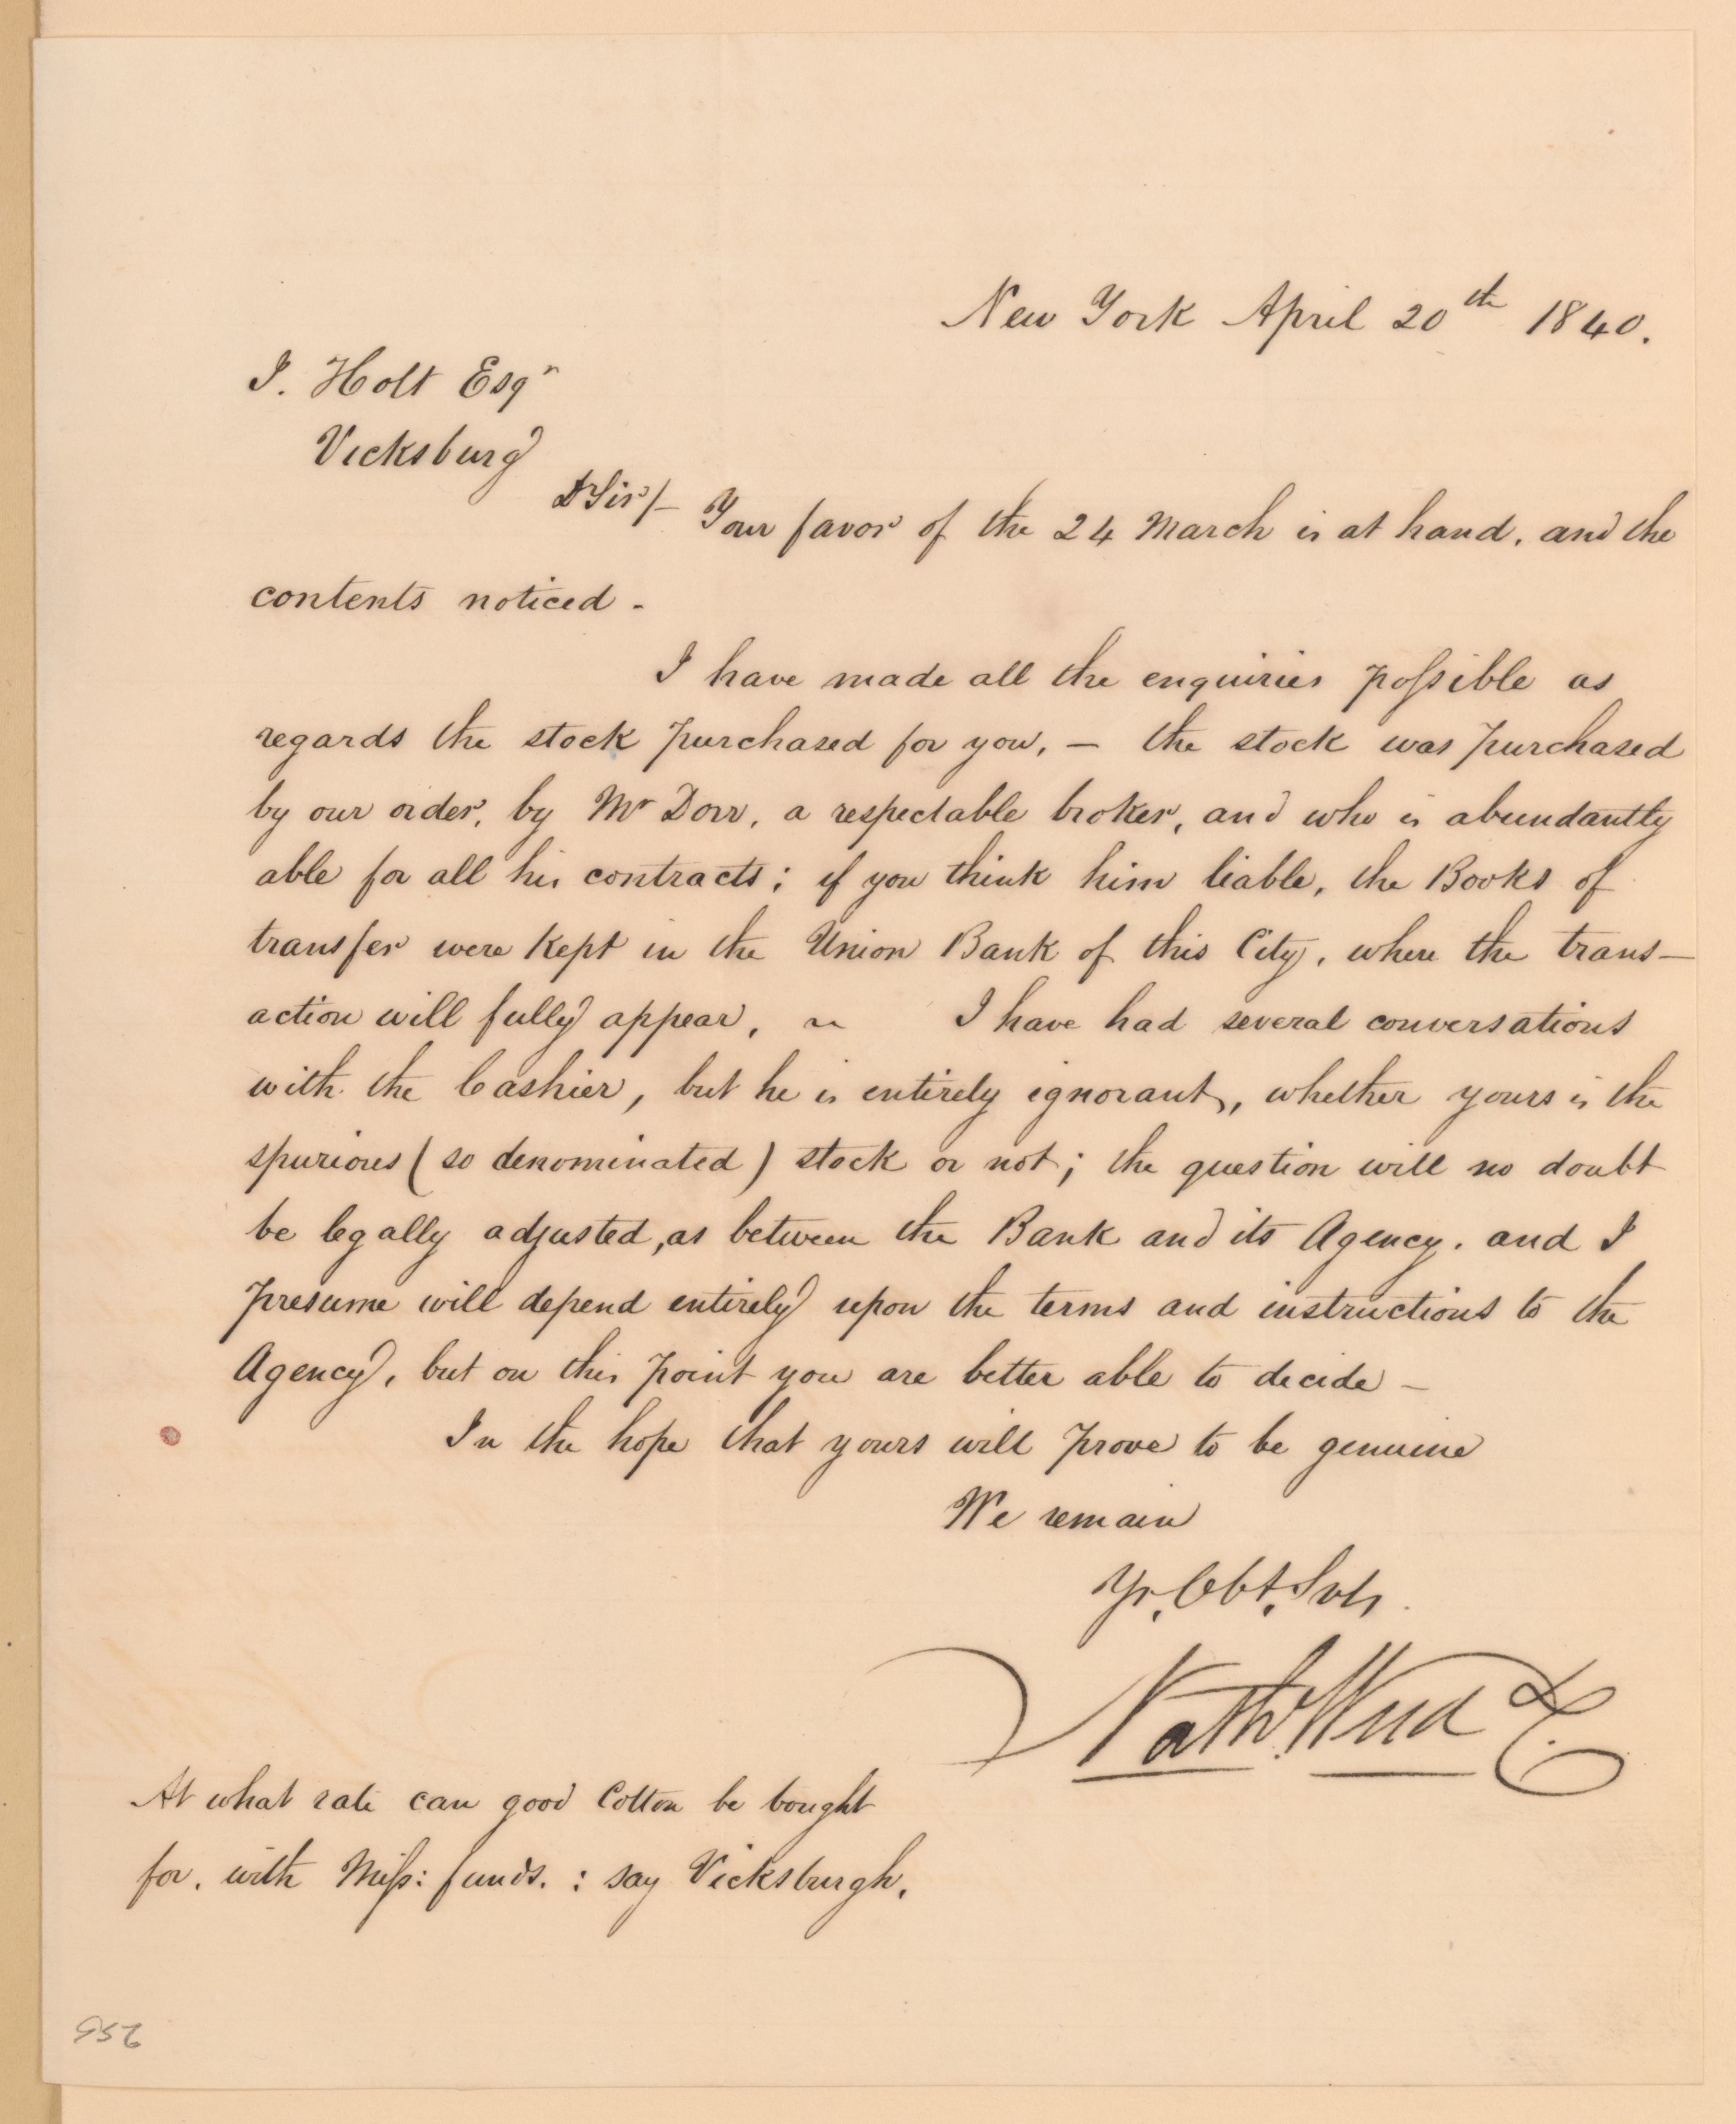 New York April 20th 1840.
J. Holt Esqr
Vicksburg
DrSir/- Your favor of the 24 March is at hand, and the
contents noticed -
I have made all the enquiries possible as
regards the stock purchased for you, — the stock was purchased
by our order, by Mr Dorr, a respectable broker, and who is abundantly
able for all his contracts; if you think him liable, the Books of
transfer were kept in the Union Bank of this City, where the trans—
action will fully appear, ~ I have had several conversations
with the Cashier, but he is entirely ignorant, whether yours is the
spurious (so denominated) stock or not; the question will no doubt
be legally adjusted, as between the Bank and its Agency. and I
presume will depend entirely upon the terms and instructions to the
Agency, but on this point you are better able to decide —
In the hope that yours will prove to be genuine
We remain
Yr. Obt. Svts.
Nathl Weed
At what rate can good Cotton be bought
for. with Miss: funds. : say Vicksburgh.
952